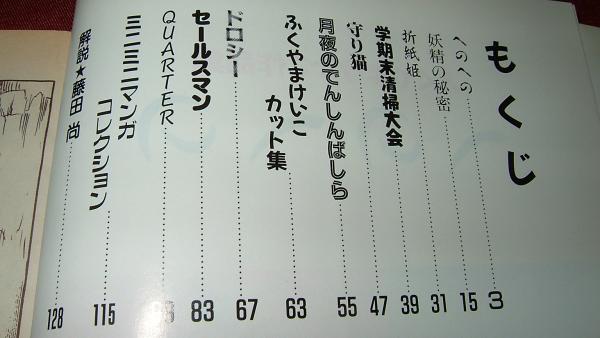 もくじ
へのへの 3
妖精の秘密 15
折紙姫 31
学期末清掃大会 39
守り猫 47
月夜のでんしんばしら 55
ふくやまけいこ
カット集 63
ドロシー 67
セールスマン 83
QUARTER
ミニミニマンガ
コレクション 115
解説★藤田 尚 128